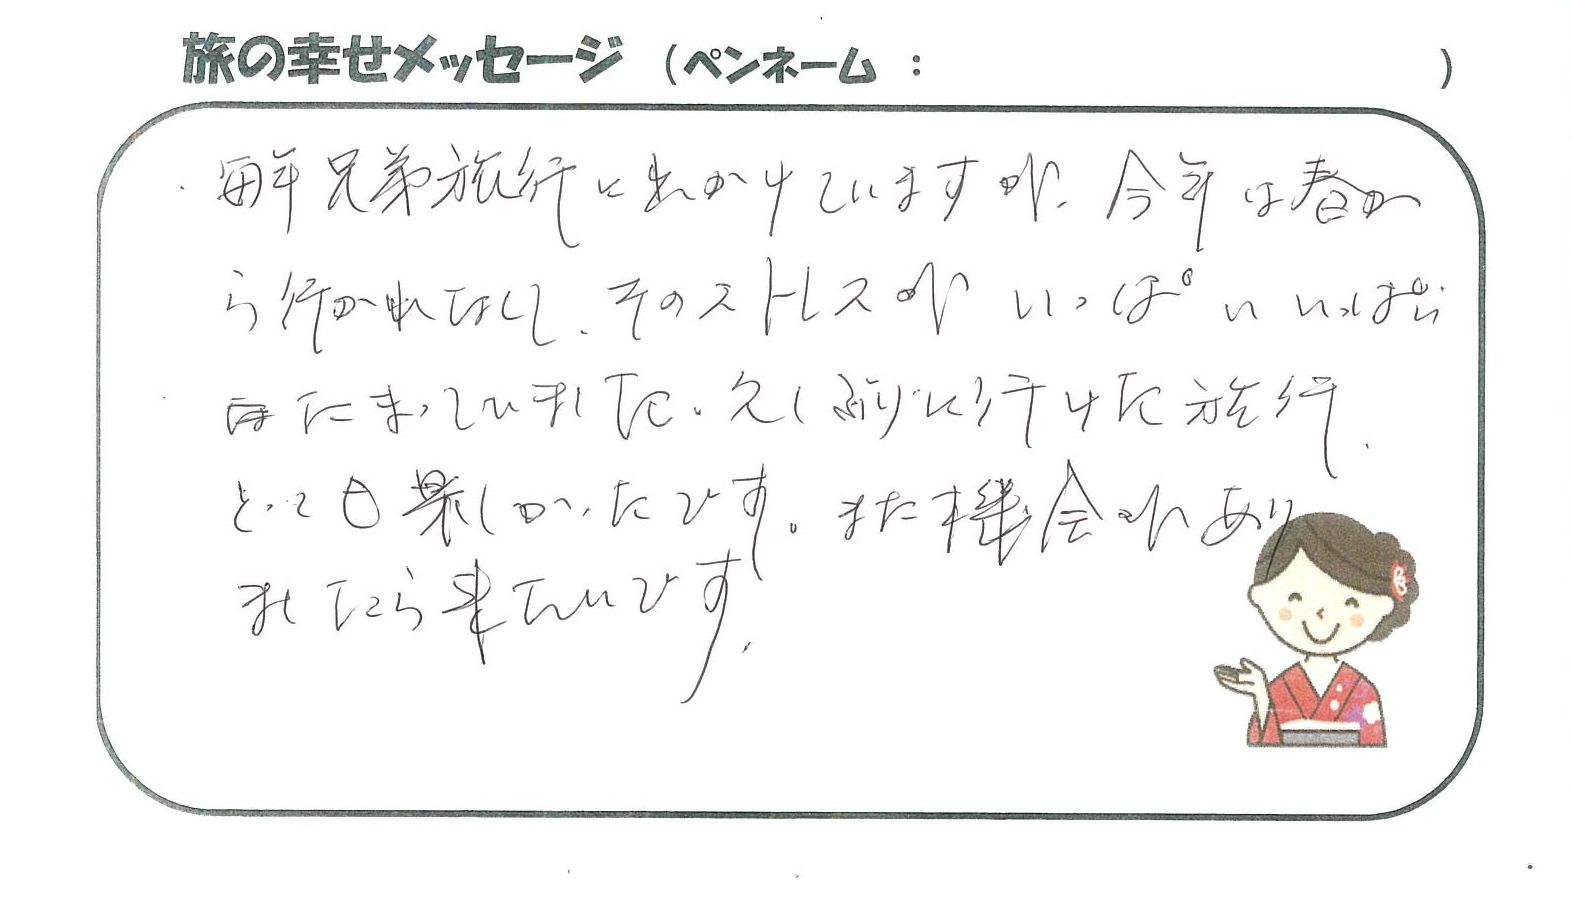 旅の幸せメッセージ (ペンネーム : )
毎年兄弟旅行に出かけていますが、今年は春か
ら行かれなくて、そのストレスがいっぱいいっぱい
たまっていました。久しぶりに行けた旅行、
とっても楽しかったです。また機会があり
ましたら来たいです。